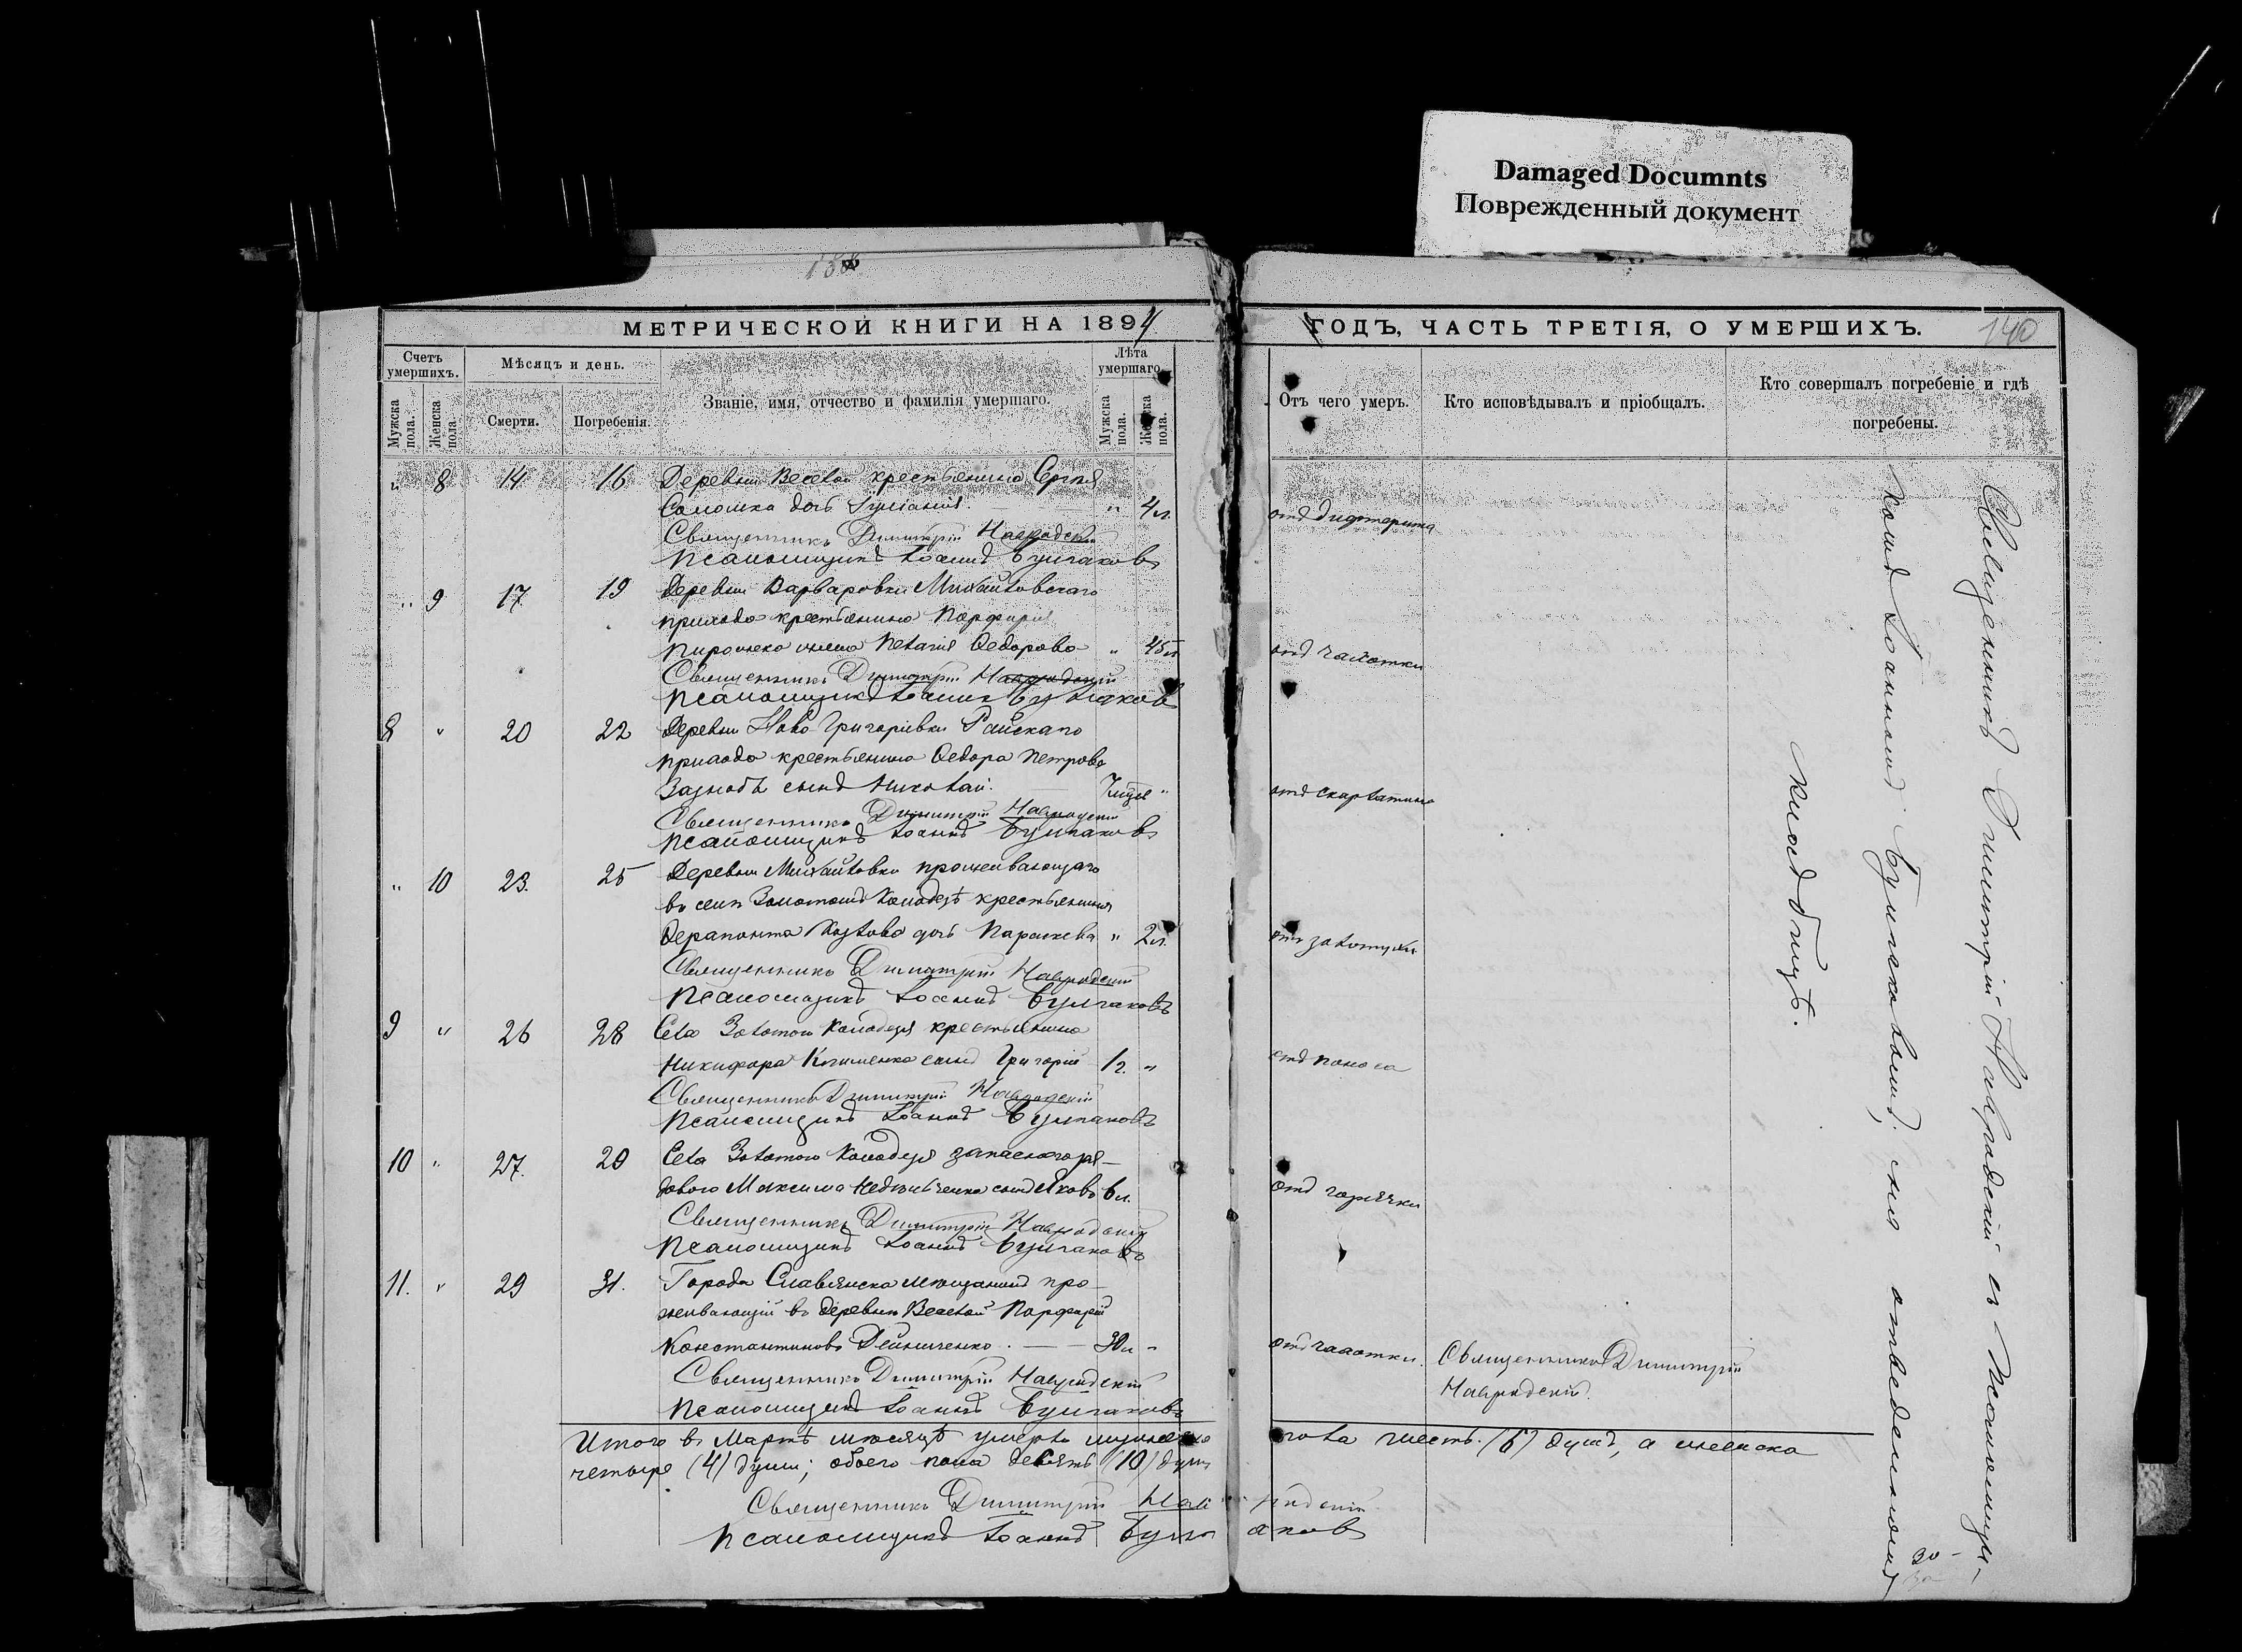 Damaged Documnts
Поврежденный документ
МЕТРИЧЕСКОЙ КНИГИ НА 1894
ГОДЪ, ЧАСТЬ ТРЕТІЯ, О УМЕРШИХЪ.
140
Счетъ умершихъ.
Мужска пола.
Женска пола.
Мѣсяцъ и день.
Смерти.
Погребенія.
Званіе, имя, отчество и фамилія умершаго.
Лѣта умершаго.
Мужска пола.
Женска пола.
Отъ чего умеръ.
Кто исповѣдывалъ и пріобщалъ.
Кто совершалъ погребеніе и гдѣ
погребены.
" 8 14 16 Деревни Веселой крестьянина Сергѣя
дочь Іуліанія. " 4 л. отъ дифтерита
Священникъ Димитрій Навродскій
Псаломщикъ Іоаннъ Булгаковъ
" 9 17 19 Деревни Варваровки Михайловскаго
прихода крестьянина Порфирія
жена Пелагія Ѳедорова " 45 л. отъ чахотки
Священникъ Димитрій Навродскій
Псаломщикъ Іоаннъ Булгаковъ
8 " 20 22 Деревни Ново Григорівки Райскаго
прихода крестьянина Ѳедора Петрова
сынъ Николай. " отъ скарлатины
Священникъ Димитрій Навродскій
Псаломщикъ Іоаннъ Булгаковъ
" 10 23. 25 Деревни Михайловки проживающаго
въ селѣ Золотомъ Колодезѣ крестьянина
Ѳерапонта Козлова дочь Параскева " 2 л.
Священникъ Димитрій Навродскій
Псаломщикъ Іоаннъ Булгаковъ
9 " 26 28 Села Золотого Колодезя крестьянина
Никифора Клименка сынъ Григорій 1 г. " отъ поноса
Священникъ Димитрій Навродскій
Псаломщикъ Іоаннъ Булгаковъ
10 " 27. 29 Села Золотого Колодезя запаснаго ря-
дового Максима сынъ Яковъ 6 л. отъ горячки
Священникъ Димитрій Навродскій
Псаломщикъ Іоаннъ Булгаковъ
11. " 29 31. Города Славянска мѣщанинъ про-
живающій въ деревнѣ Веселой Порфирій
Константиновъ Дейниченко. 30 л. " отъ чахотки. Священникъ Димитрій
Навродскій.
Псаломщикъ Іоаннъ Булгаковъ
Священникъ Димитрій Навродскій
Итого въ Мартѣ мѣсяцѣ умерло мужеска пола шесть (6) душъ, а женска
четыре (4) души; обоего пола (10) душъ
Священникъ Димитрій Навродскій
Псаломщикъ Іоаннъ Булгаковъ
Священникъ Димитрій Навродскій съ Псаломщи-
комъ Іоанномъ Булгаковымъ; на отведенномъ
кладбищѣ.